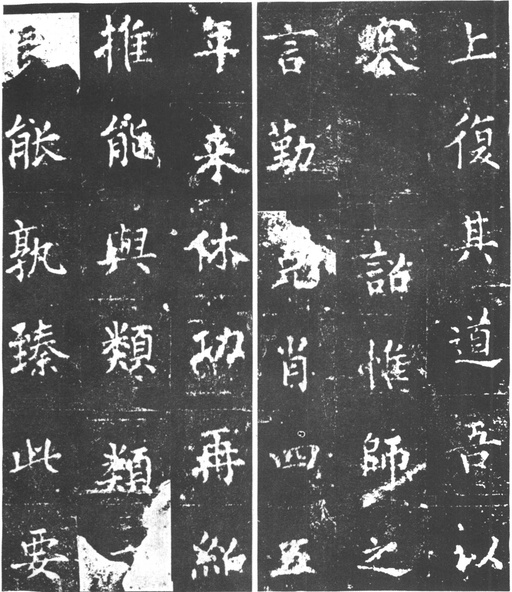 上復其道吾以
詔惟師之
言勤克肖四五
年来休功再紹
推能與類類
能孰臻此要